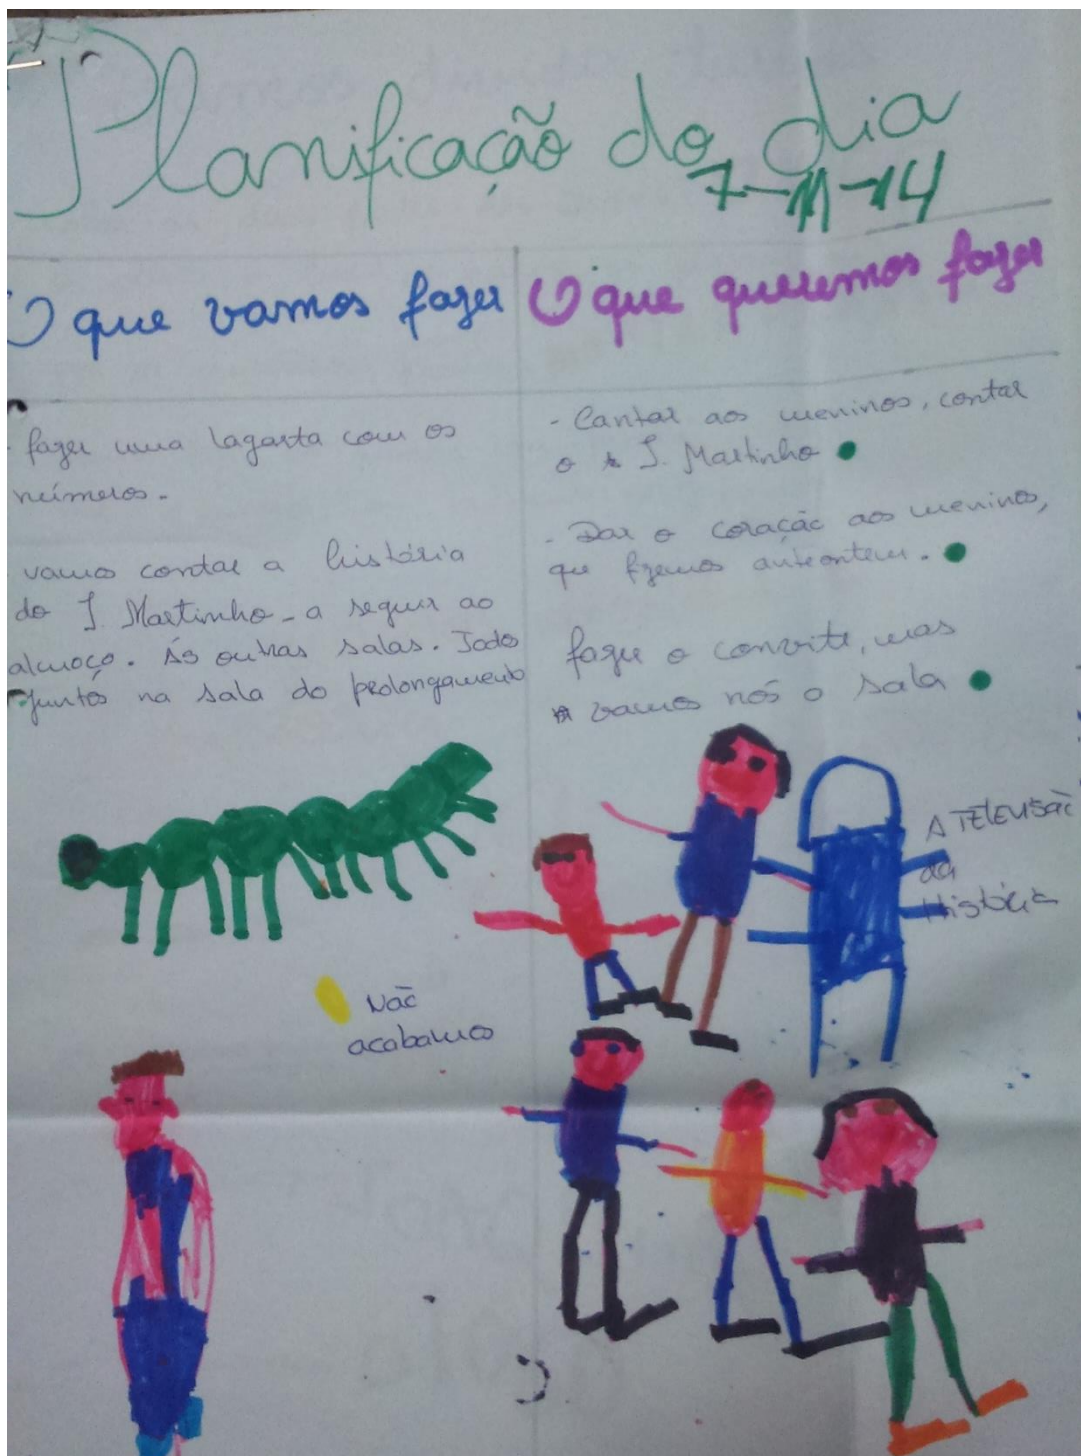 Planificação do dia
7-11-14
O que vamos fazer
- fazer uma lagarta com os
números.
vamos contar a história
do S. Martinho - a seguir ao
almoço. Às outras salas. Todos
juntos na sala do prolongamento
Não
acabamos
O que queremos fazer
- Cantar aos meninos, contar
o S. Martinho
- Dar o coração aos meninos,
que fizemos anteontem.
fazer o convite, mas
vamos nós o sala
A TELEVISÃO
da
História